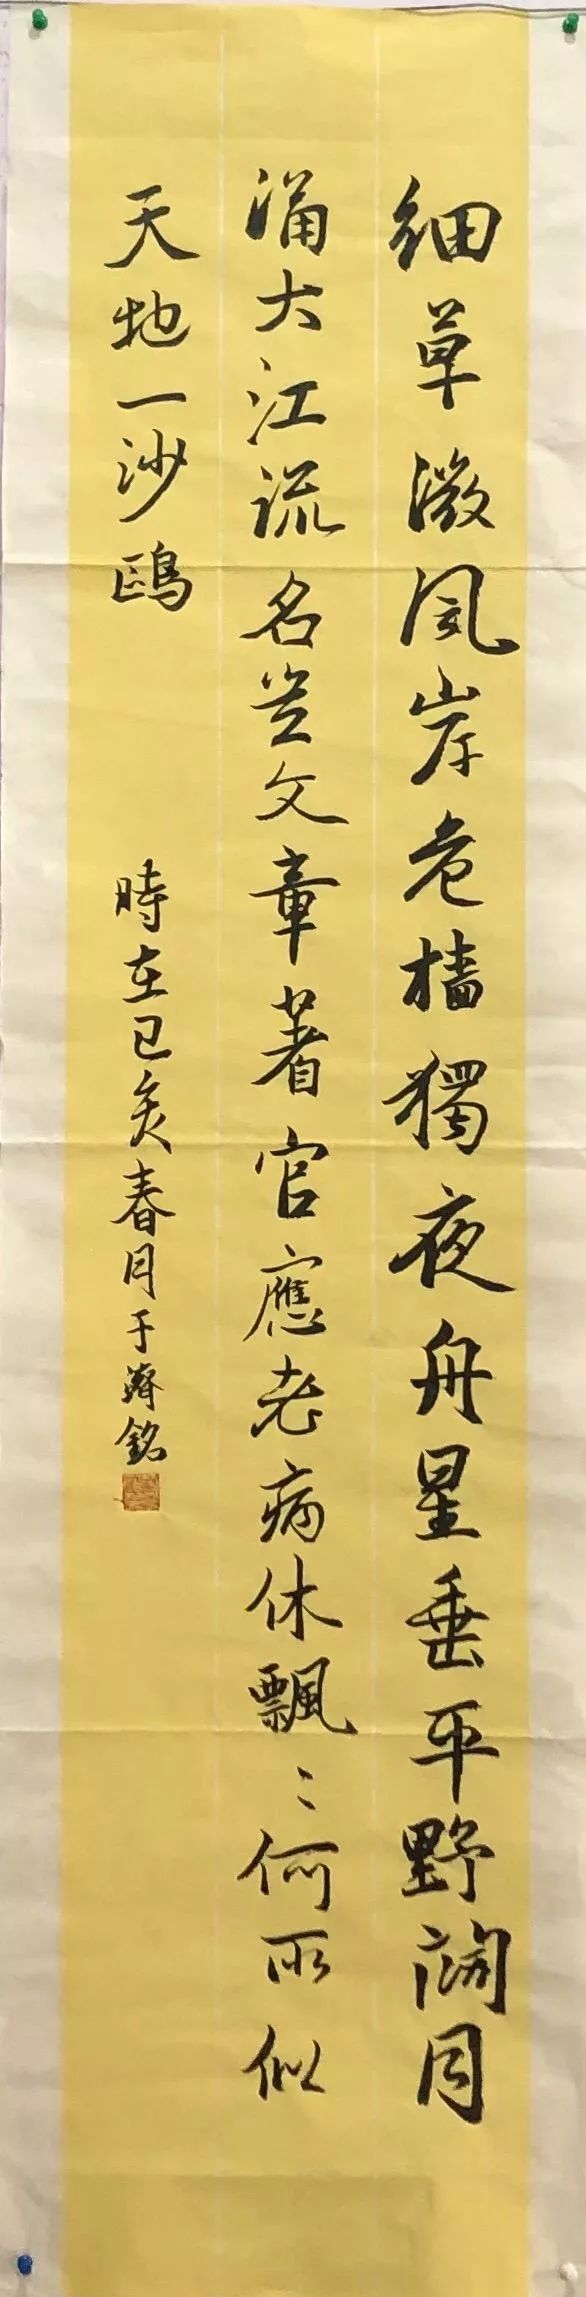 細草微風岸危樯獨夜舟星垂平野闊月
涌大江流名豈文章著官應老病休飄〻何所似
天地一沙鷗
時在己亥春月于濟銘